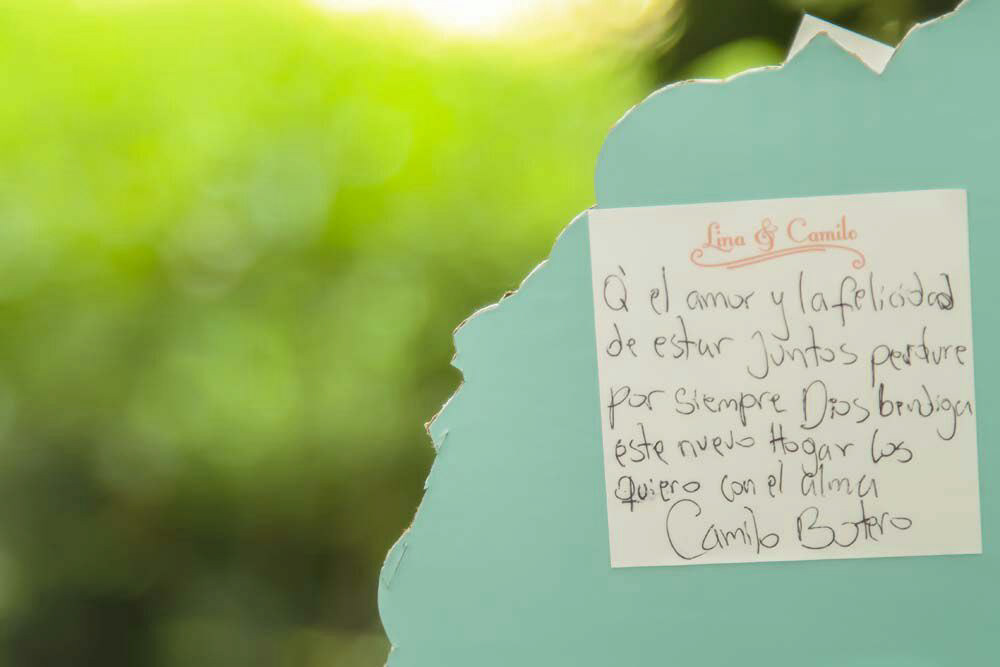 Lina & Camilo
Q' el amor y la felicidad
de estar juntos perdure
por siempre Dios bendiga
este nuevo Hogar los
quiero con el alma
Camilo Botero